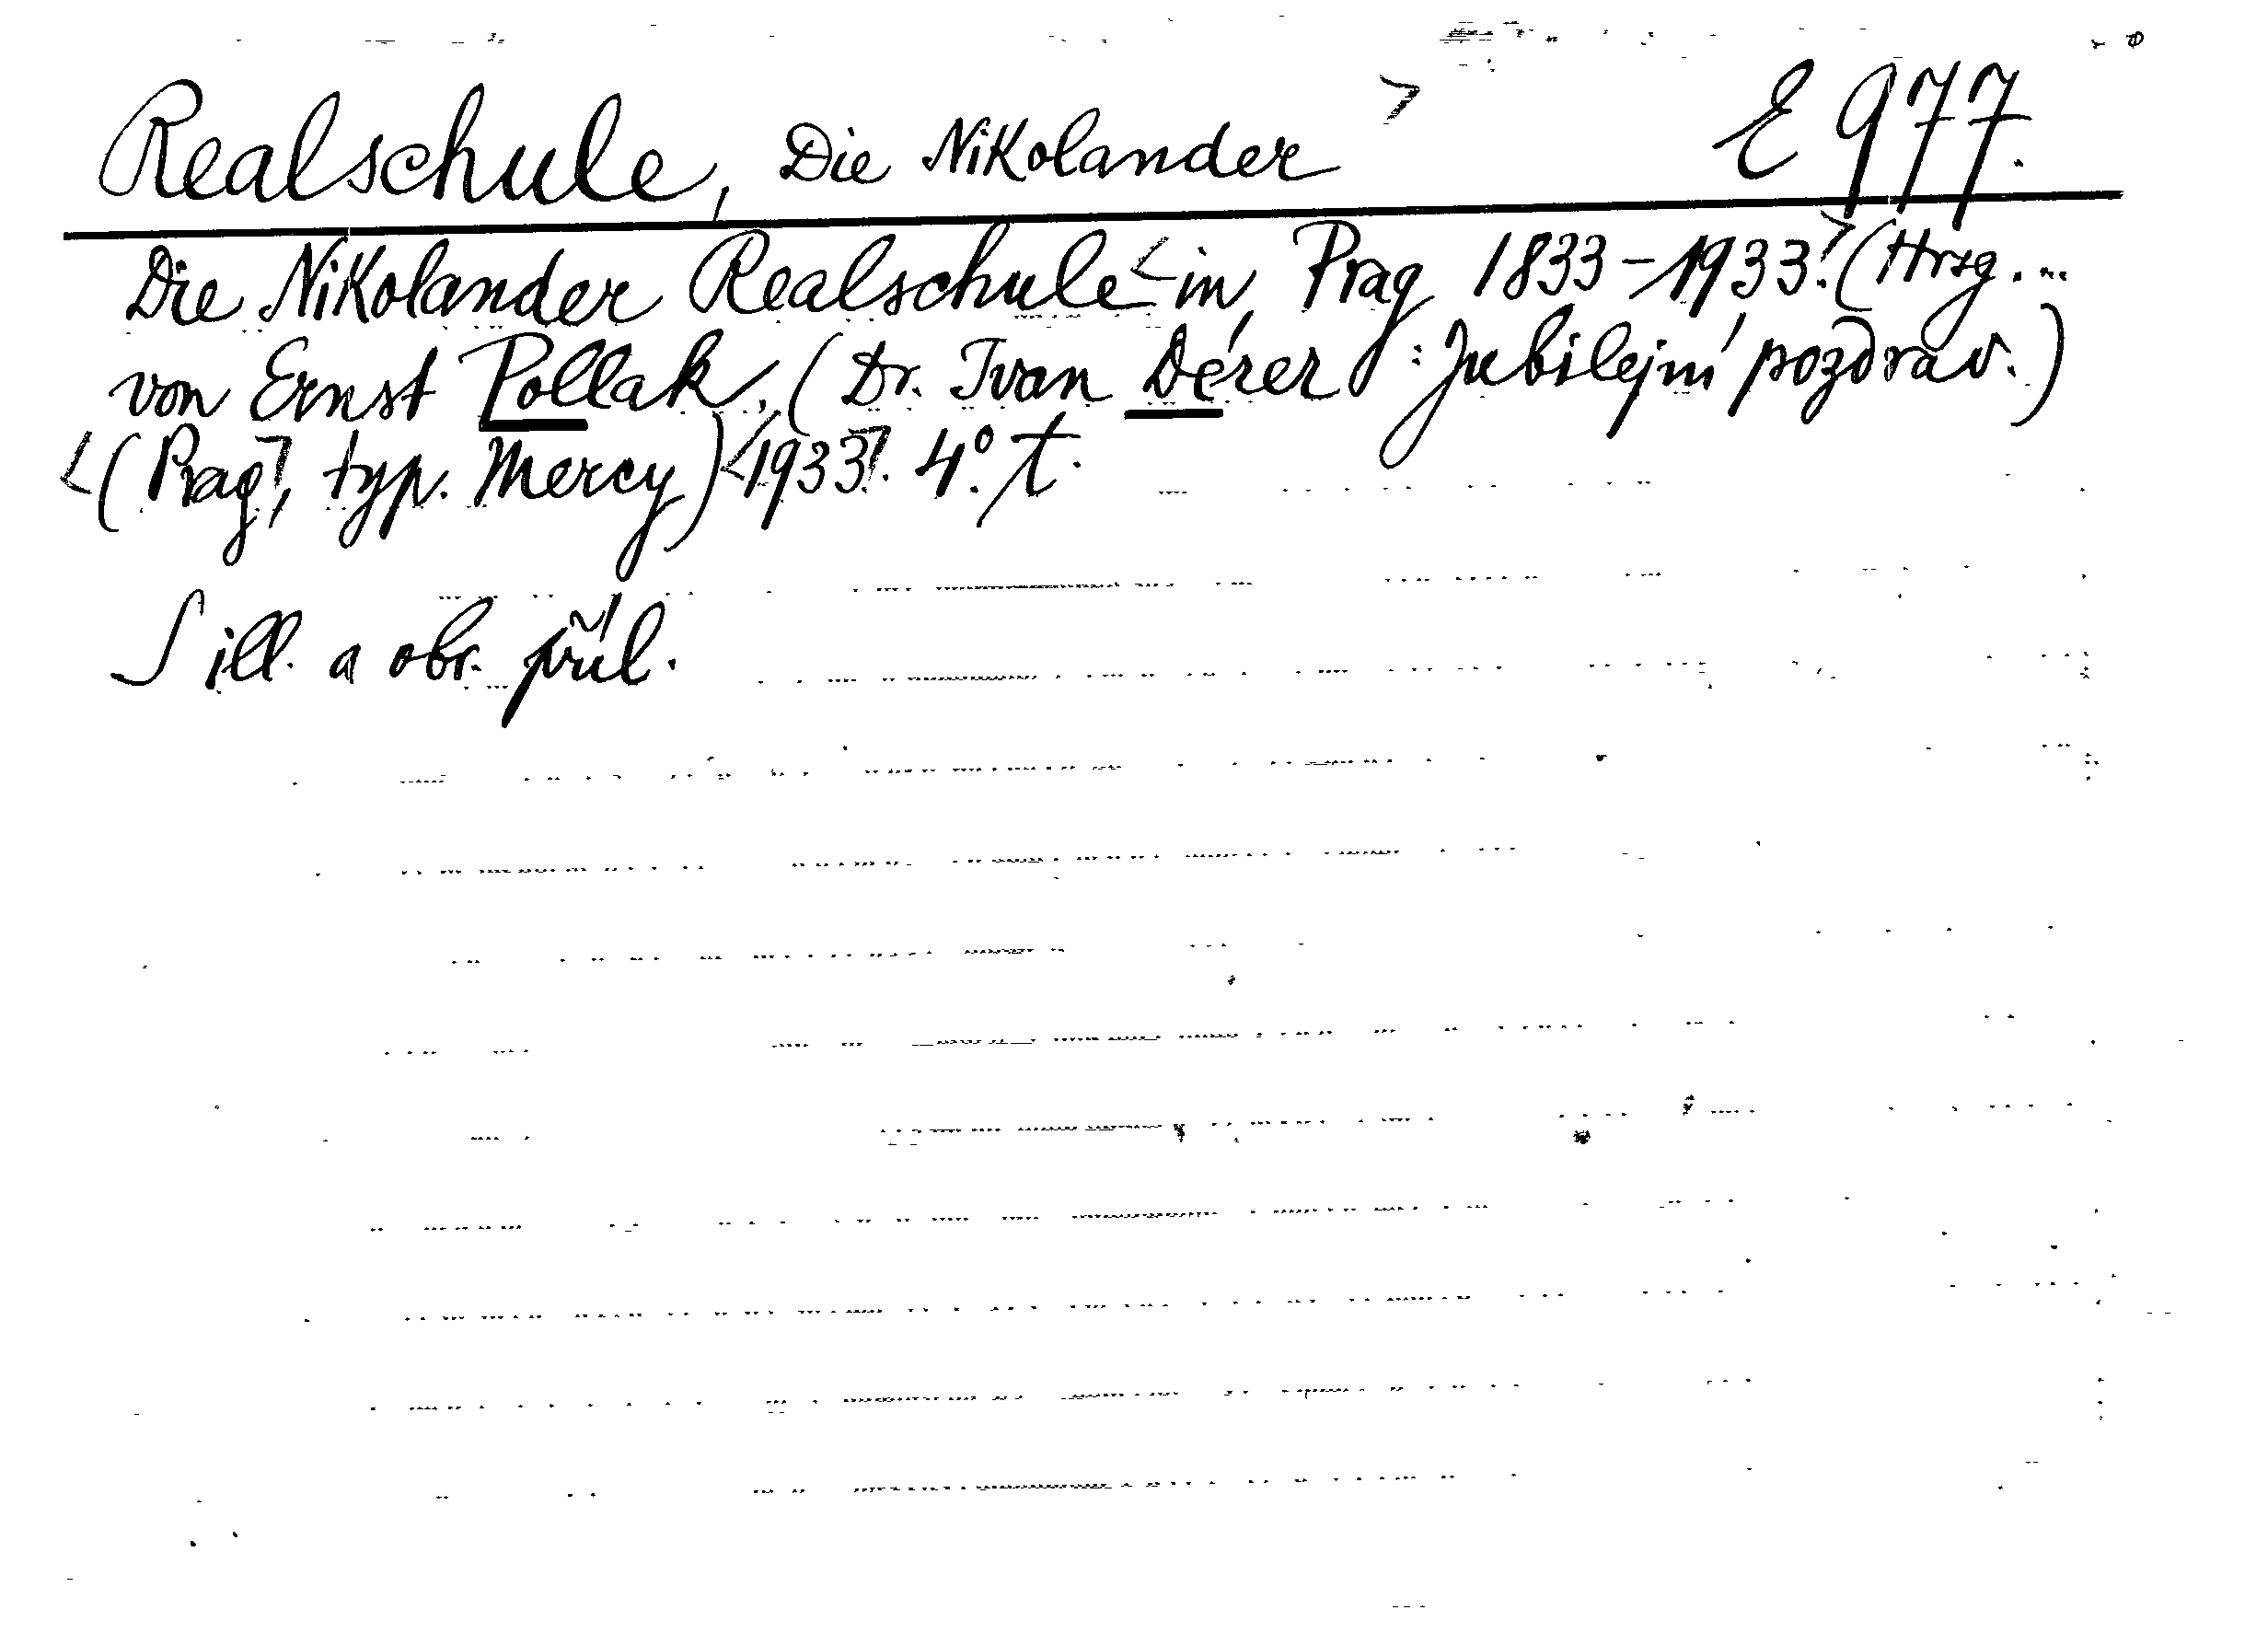 Realschule, Die Nikolander > E 977.
Die Nikolander Realschule < in Prag 1833-1933.> (Hrsg. ...
von Ernst Pollak. (Dr. Ivan Dérer : Jubilejní pozdrav.)
<(Prag>, typ. Mercy) <1933>. 4°. t.
S ill. a obr. příl.